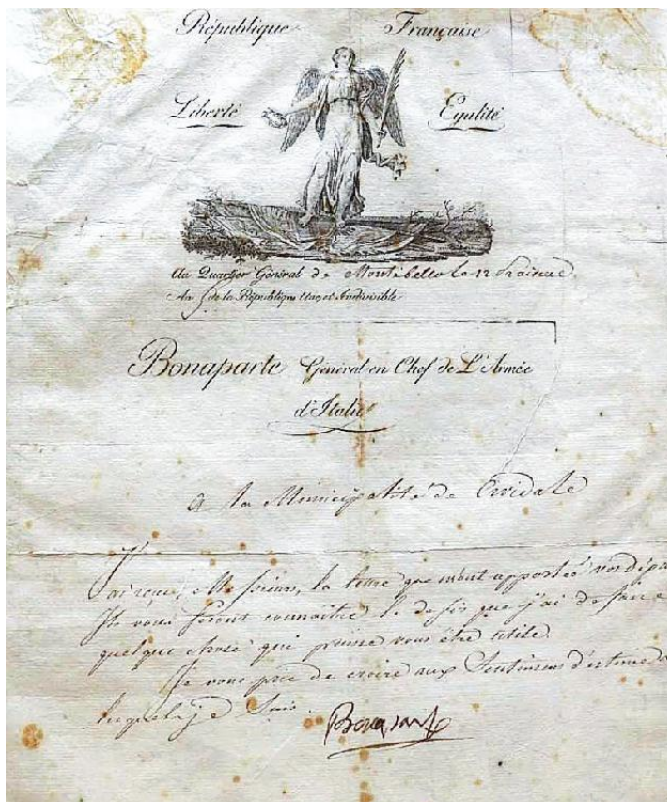 République Française
Liberté Egalité
Au Quartier Général de Montibello le 12 Prairial
An 5 de la République Une et Indivisible
Bonaparte Général en Chef de L'Armée
d'Italie
a la Municipalité de Cividale
J'ai reçu, Messieurs, la lettre que m'ont apportée vos dépu
Ils vous feront connaître le desir que j'ai de faire
quelque chose qui puisse vous être utile.
Je vous prie de croire aux Sentimens d'estime
je Suis.
Bonaparte